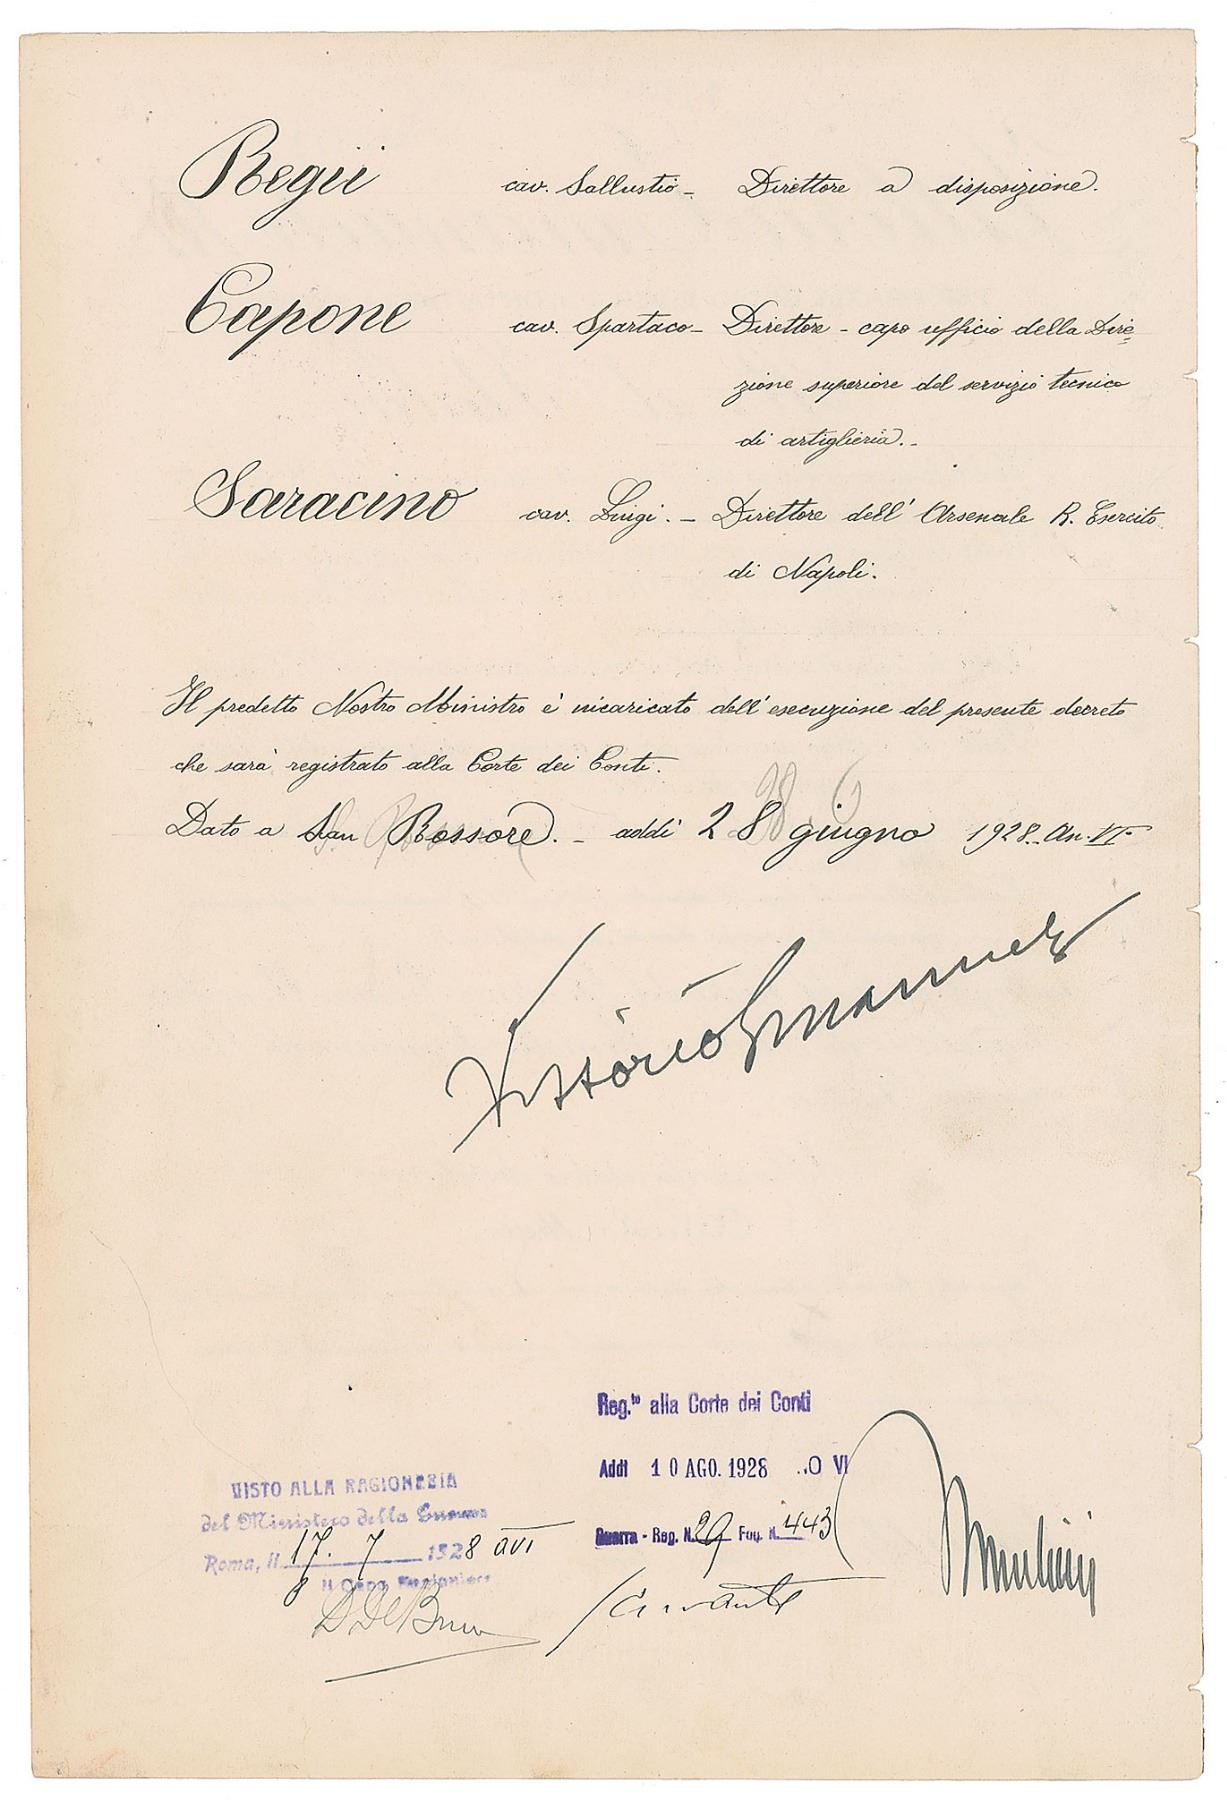 Regii cav. Sallustio - Direttore a disposizione.
Capone cav. Spartaco - Direttore - capo ufficio della Dire=
zione superiore del servizio tecnico
di artiglieria. -
Saracino cav. Luigi. - Direttore dell' Arsenale R. Esercito
di Napoli.
Il predetto Nostro Ministro è incaricato dell'esecuzione del presente decreto
che sarà registrato alla Corte dei Conti.
Dato a San Rossore. - addì 28 giugno 1928. An. VI°
28 6
Vittorio Emanuele
Reg.to alla Corte dei Conti
Addì 10 AGO. 1928 VI
Guerra - Reg. N. 29 Fog. N. 443
Mussolini
VISTO ALLA RAGIONERIA
del Ministero della Guerra
Roma, il 17. 7 1928 AVI
Il Capo Ragioniere